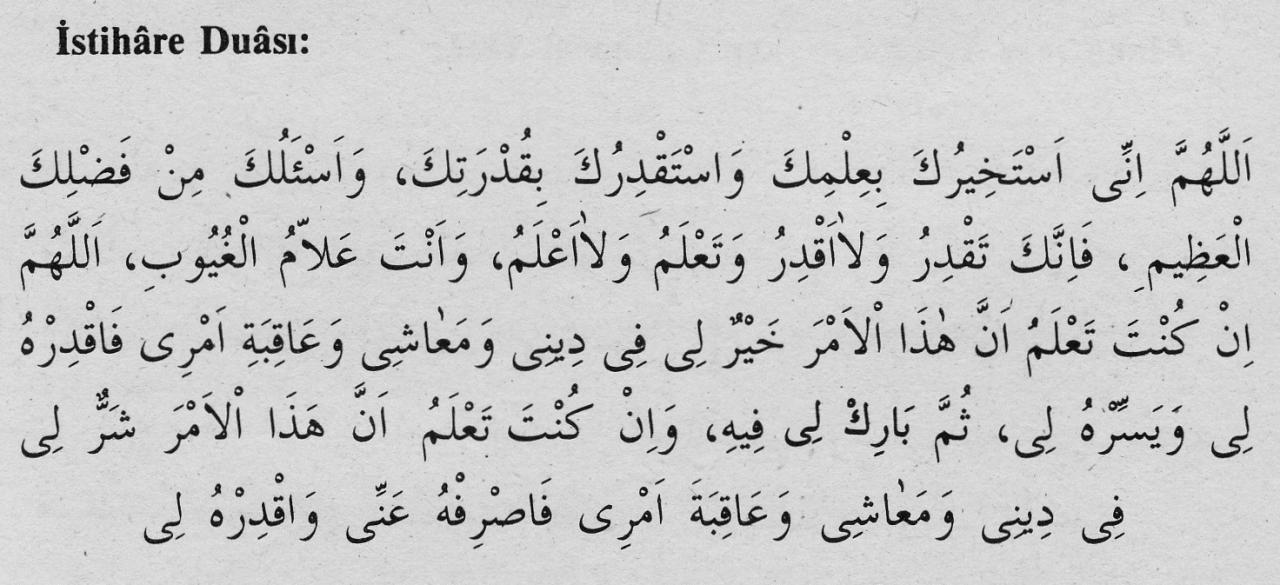 İstihâre Duâsı:
اَللَّهُمَّ اِنِّى اَسْتَخِيرُكَ بِعِلْمِكَ وَاسْتَقْدِرُكَ بِقُدْرَتِكَ، وَاَسْئَلُكَ مِنْ فَضْلِكَ
الْعَظِيمِ، فَاِنَّكَ تَقْدِرُ وَلاٰاَقْدِرُ وَتَعْلَمُ وَلاٰاَعْلَمُ، وَاَنْتَ عَلاّمُ الْغُيُوبِ، اَللَّهُمَّ
اِنْ كُنْتَ تَعْلَمُ اَنَّ هٰذَا اْلاَمْرَ خَيْرٌ لِى فِى دِينِى وَمَعٰاشِى وَعَاقِبَةِ اَمْرِى فَاقْدِرْهُ
لِى وَيَسِّرْهُ لِى، ثُمَّ بَارِكْ لِى فِيهِ، وَاِنْ كُنْتَ تَعْلَمُ اَنَّ هَذَا اْلاَمْرَ شَرٌّ لِى
فِى دِينِى وَمَعٰاشِى وَعَاقِبَةَ اَمْرِى فَاصْرِفْهُ عَنِّى وَاقْدِرْهُ لِى